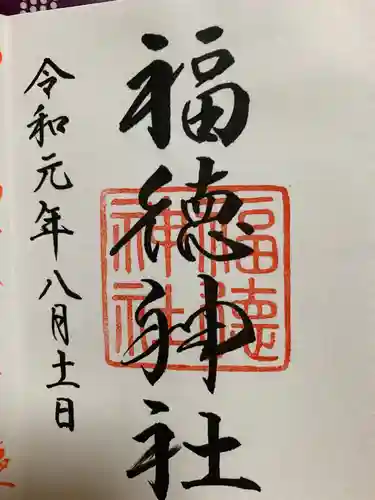 福徳神社
令和元年八月十一日
福徳
神社